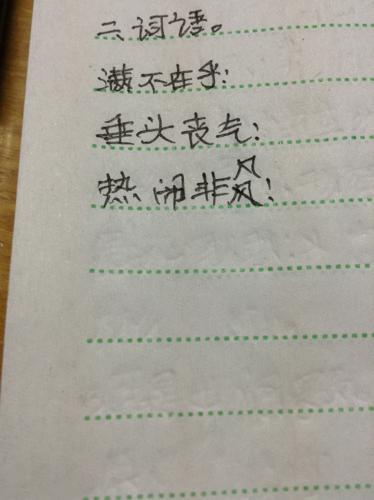 二词语。
满不在乎:
垂头丧气:
热闹非风!